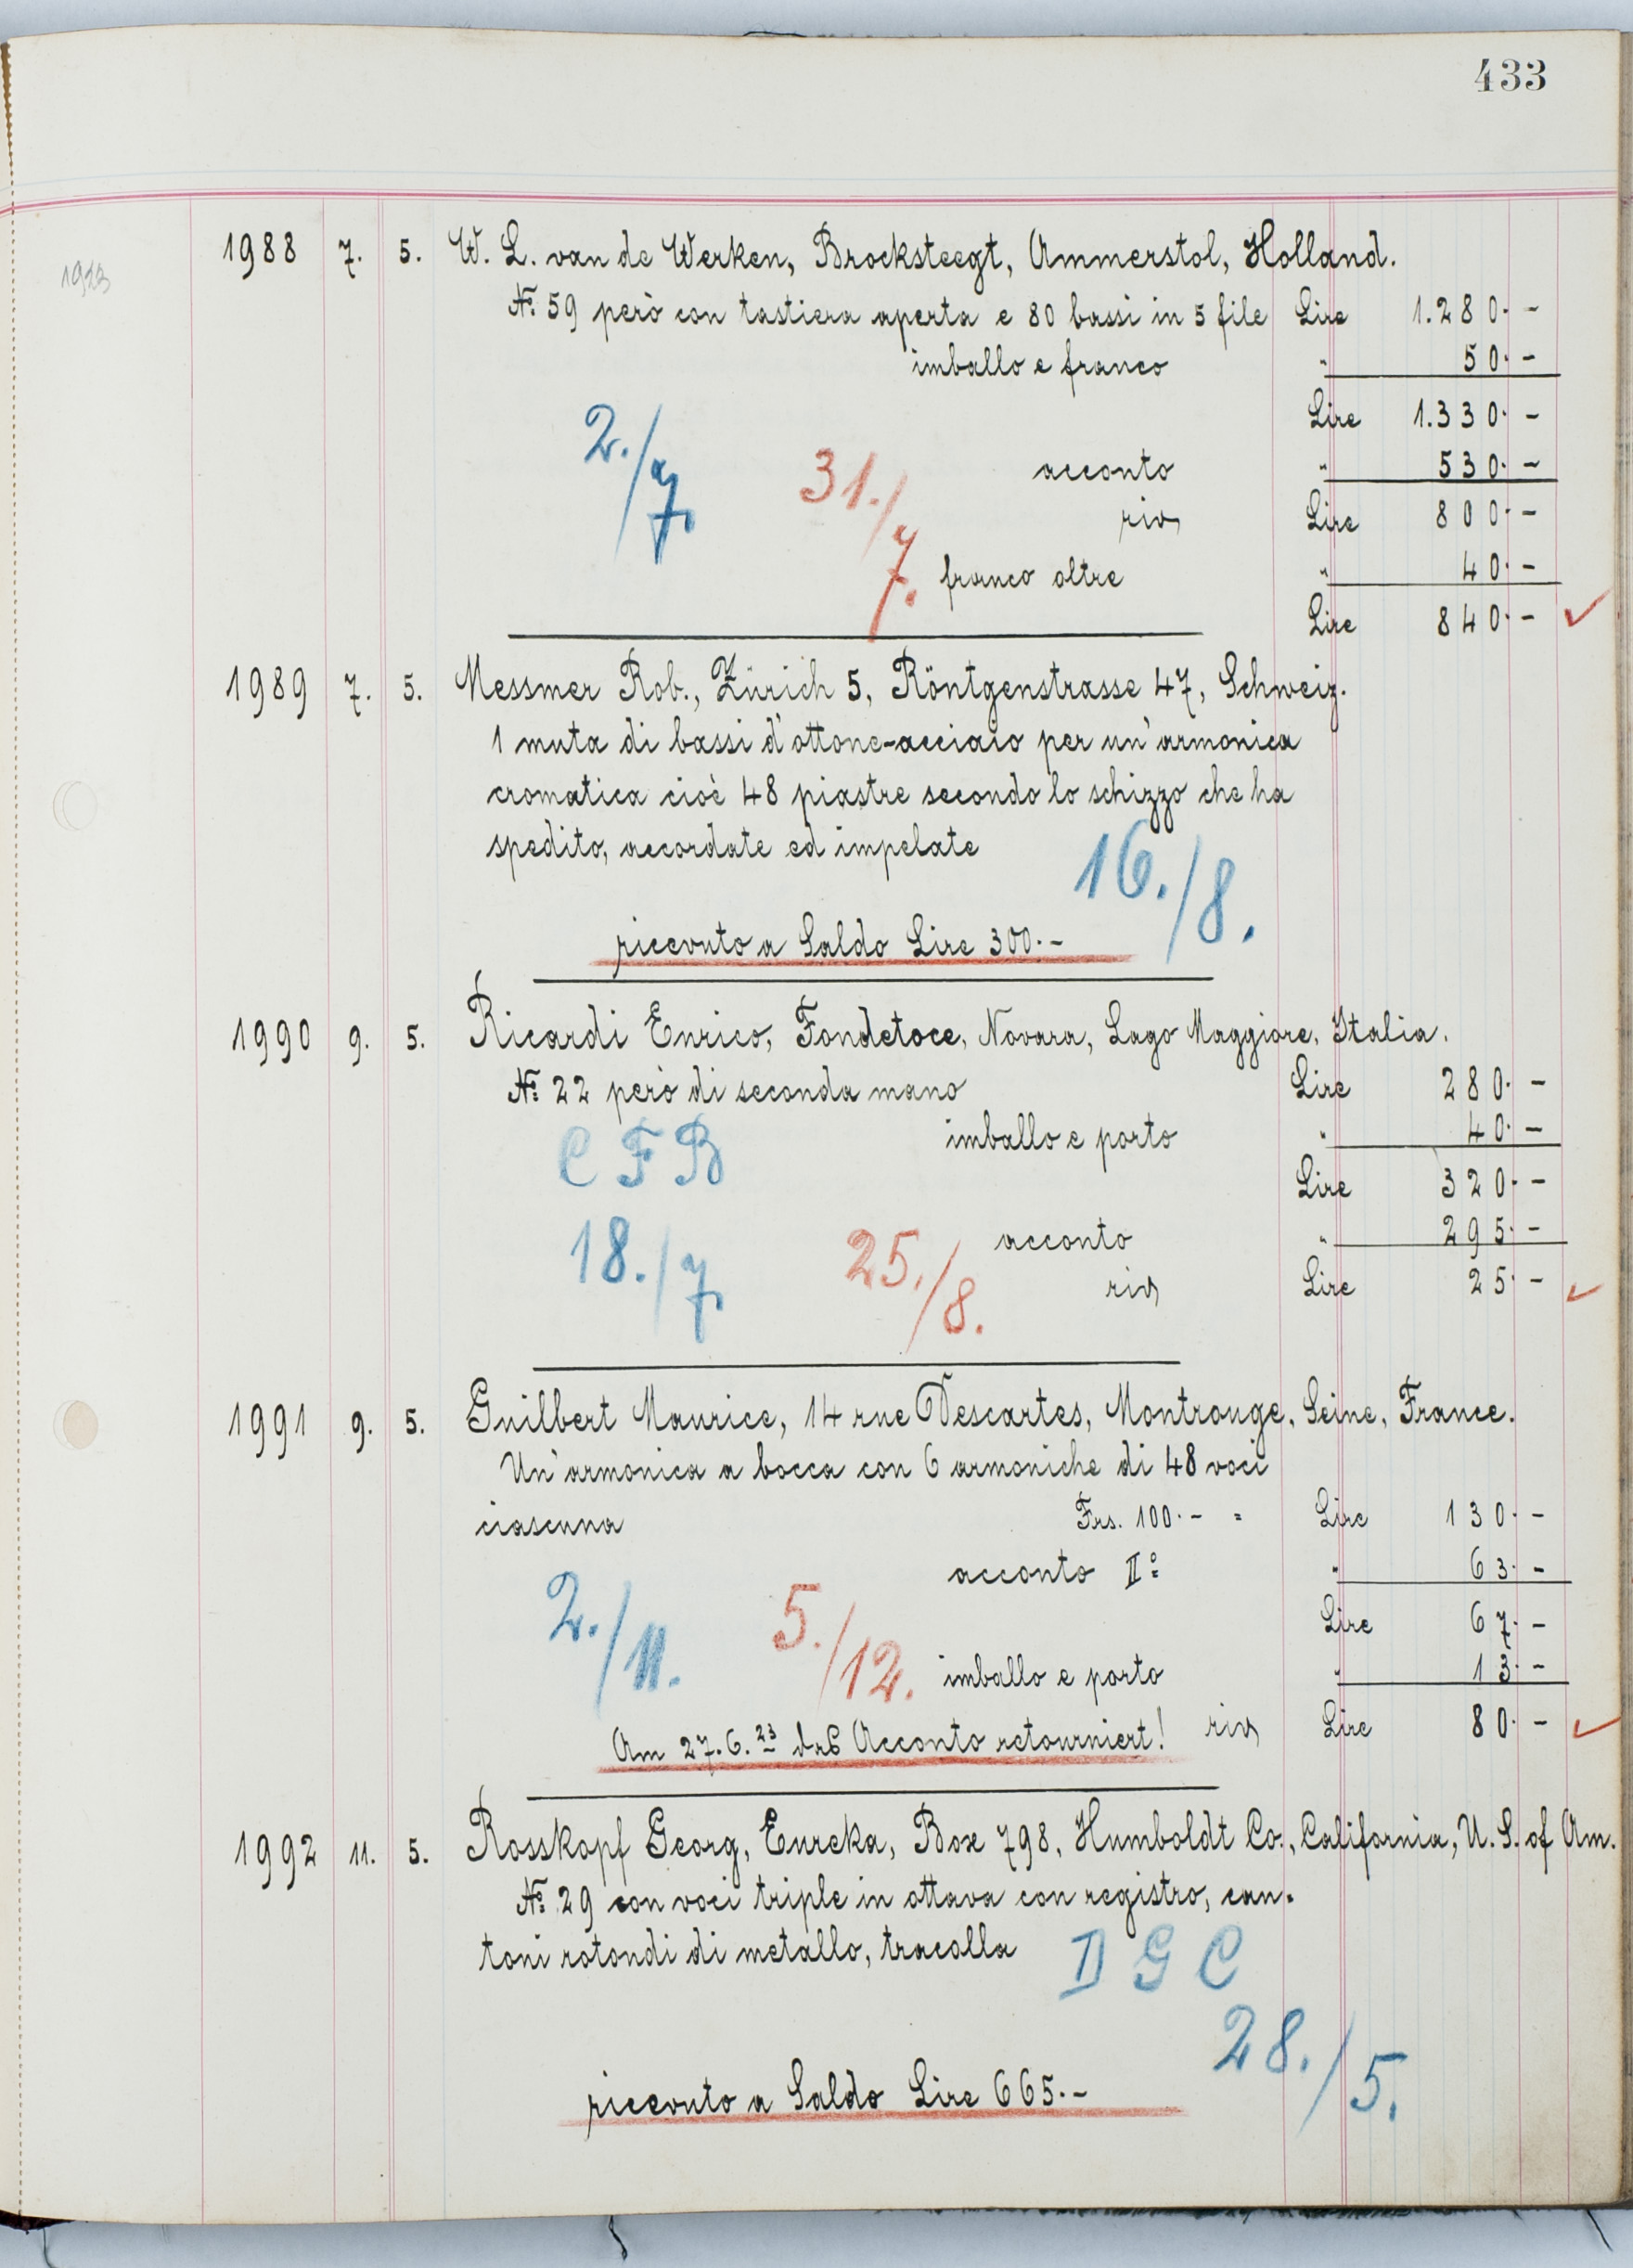 433
1923
1988 7. 5. W. L. van de Werken, Brocksteegt, Ammerstol, Holland.
№ 59 però con tastiera aperta e 80 bassi in 5 file Lire 1.280.-
imballo e franco " 50.-
Lire 1.330.-
2./7. 31./7. acconto " 530.-
Lire 800.-
franco oltre " 40.-
Lire 840.- ✓
1989 7. 5. Messmer Rob., Zürich 5, Röntgenstrasse 47, Schweiz.
1 muta di bassi d'ottone-acciaio per un'armonica
cromatica cioè 48 piastre secondo lo schizzo che ha
spedito, accordate ed impelate
16./8.
ricevuto a Saldo Lire 300.-
1990 9. 5. Ricardi Enrico, Fondetoce, Novara, Lago Maggiore, Italia.
№ 22 però di seconda mano Lire 280.-
C F B imballo e porto " 40.-
Lire 320.-
18./7. 25./8. acconto " 295.-
Lire 25.- ✓
1991 9. 5. Guilbert Maurice, 14 rue Descartes, Montrouge, Seine, France.
Un'armonica a bocca con 6 armoniche di 48 voci
ciascuna Frs. 100.- = Lire 130.-
acconto II° " 63.-
2./11. 5./12. Lire 67.-
imballo e porto " 13.-
Am 27.6.23 das Acconto retourniert! Lire 80.- ✓
1992 11. 5. Rosskopf Georg, Eureka, Box 798, Humboldt Co., California, U. S. of Am.
№ 29 con voci triple in ottava con registro, can-
toni rotondi di metallo, tracolla D G C
28./5.
ricevuto a Saldo Lire 665.-